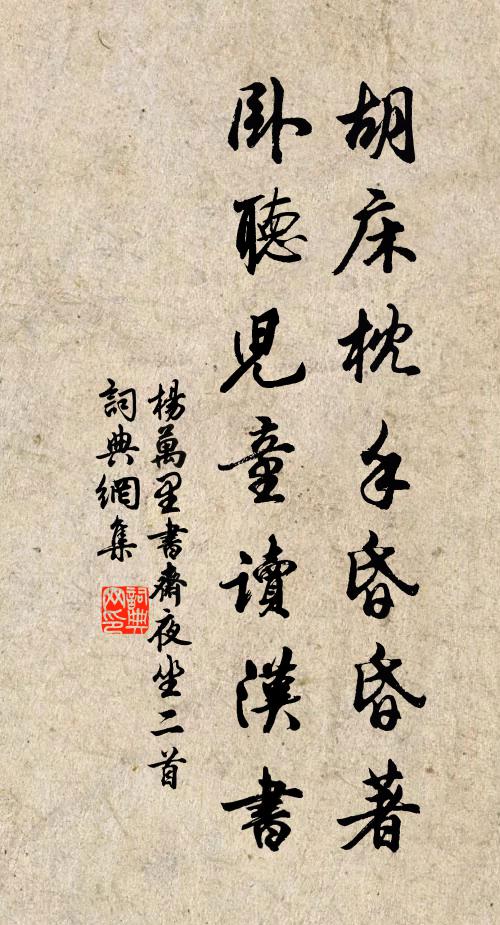 胡床枕手昏昏著
卧聽兒童讀漢書
楊萬里書齋夜坐二首
詞典網集
詞典
网印